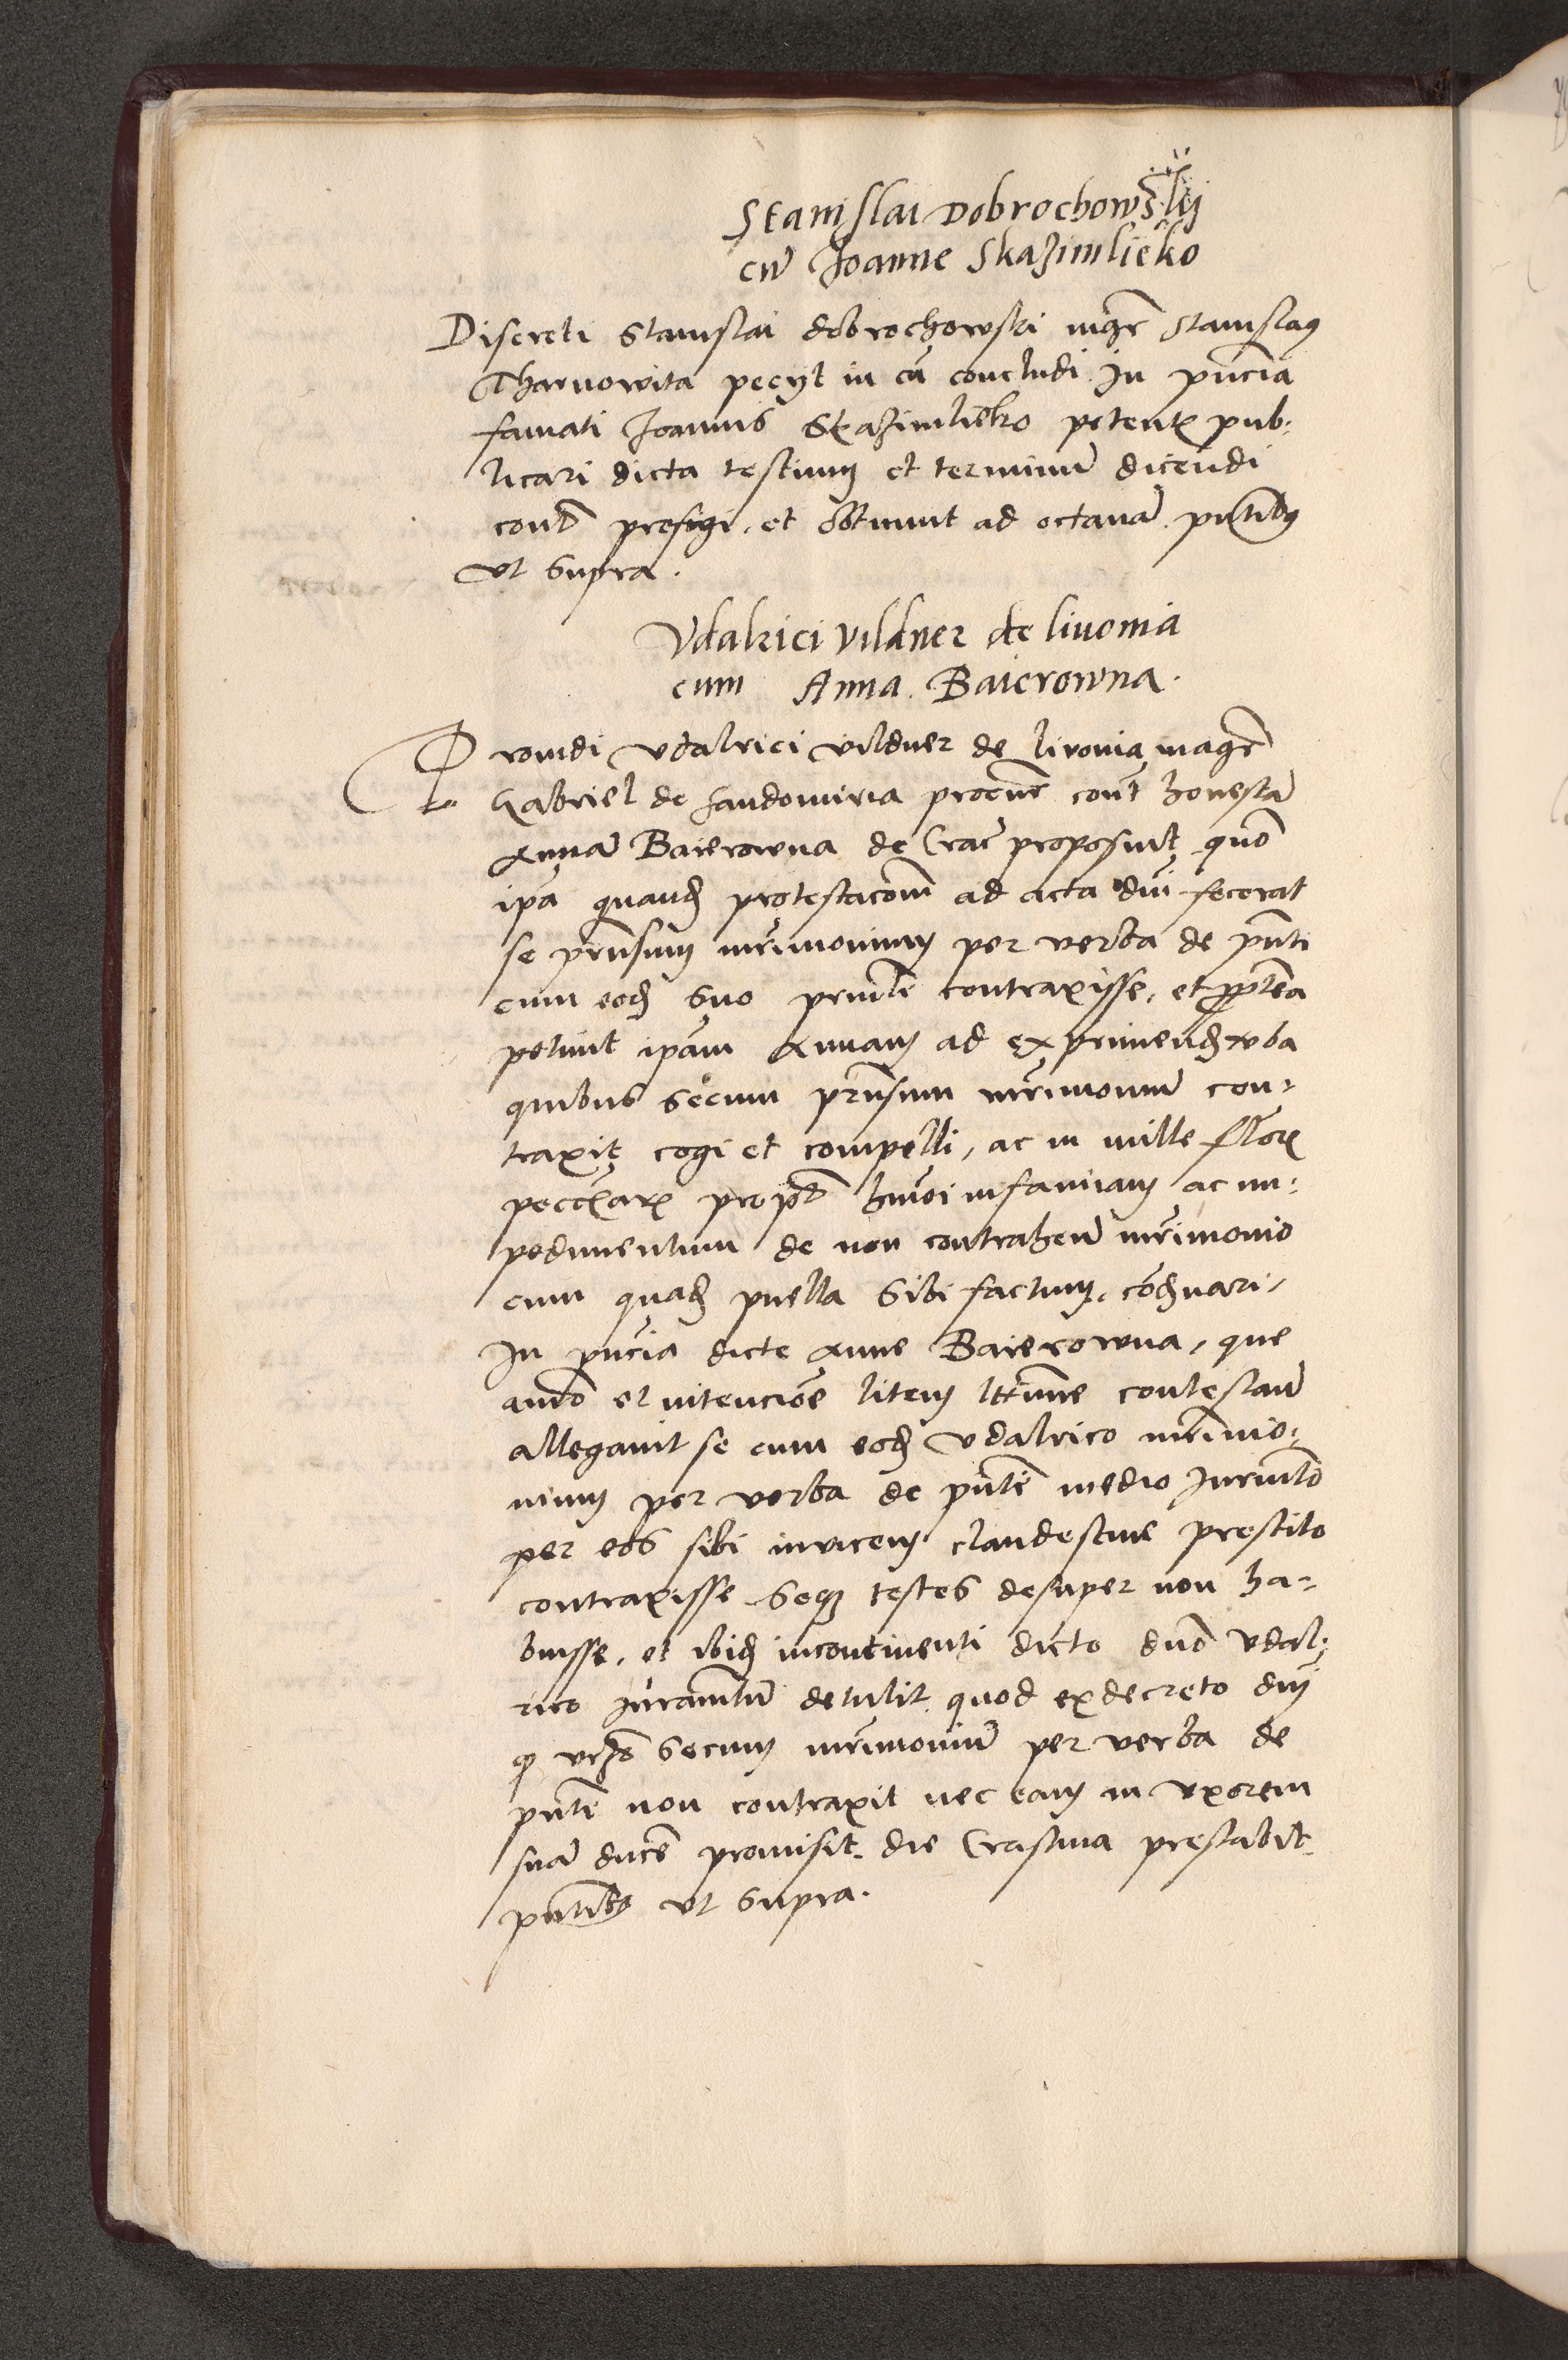 Stanislai Dobrochowskij
cũ Joanne Skazimlieko
Discreti Stanislai dobrochowski mgr̃ Stanislaus
Tharnowita pecijt in cã concludi In pñcia
famati Joannis Skazimlieko petentis pub:
licari dicta testium et terminũ dicendi
cont̃ prefigi, et obtinuit ad octauã. pñtibus
vt supra.
Vdalrici vildner de liuonia
cum Anna Baierowna.
Prouidi vdalrici vildner de livonia magr̃
Gabriel de Sandomiria procur̃ cont̃ honestã
Annã Baierowna de Crac̃ proposuit quo͂
ipa quand protestaco͂m ad acta dni fecerat
se prñsum mr̃imonium per verba de pñti
cum eod suo prin͂li contraxisse, et p͂pterea
petiuit ipãm Annam ad exprimend vba
quibus secum prñsum mr̃imoniũ con-
traxit cogi et compelli, ac in mille flor
peccuar propt̃ hm͂oi infamiam ac im:
pedimentum de non contrahen͂ mr̃imonio
cum quad puella sibi factum, co͂denari,
In pñcia dicte Anne Baierowna, que
animo et intencio͂e litem l͂tt͂ime contestan͂
allegauit se cum eod vdalrico mr̃imo:
nium per verba de pñti medio Juram͂to
per eos sibi invicem clandestine prestito
contraxisse seq͂ testes desuper non ha-
buisse, et ibid incontinenti dicto dn͂o vdal:
rico Juram͂tum detulit quod ex decreto dnj
q͂ secum mr̃imoniũ per verba de
pñti non contraxit nec eam in vxorem
suã ducer̃ promisit die Crastina prestabit
pñtibus vt supra.